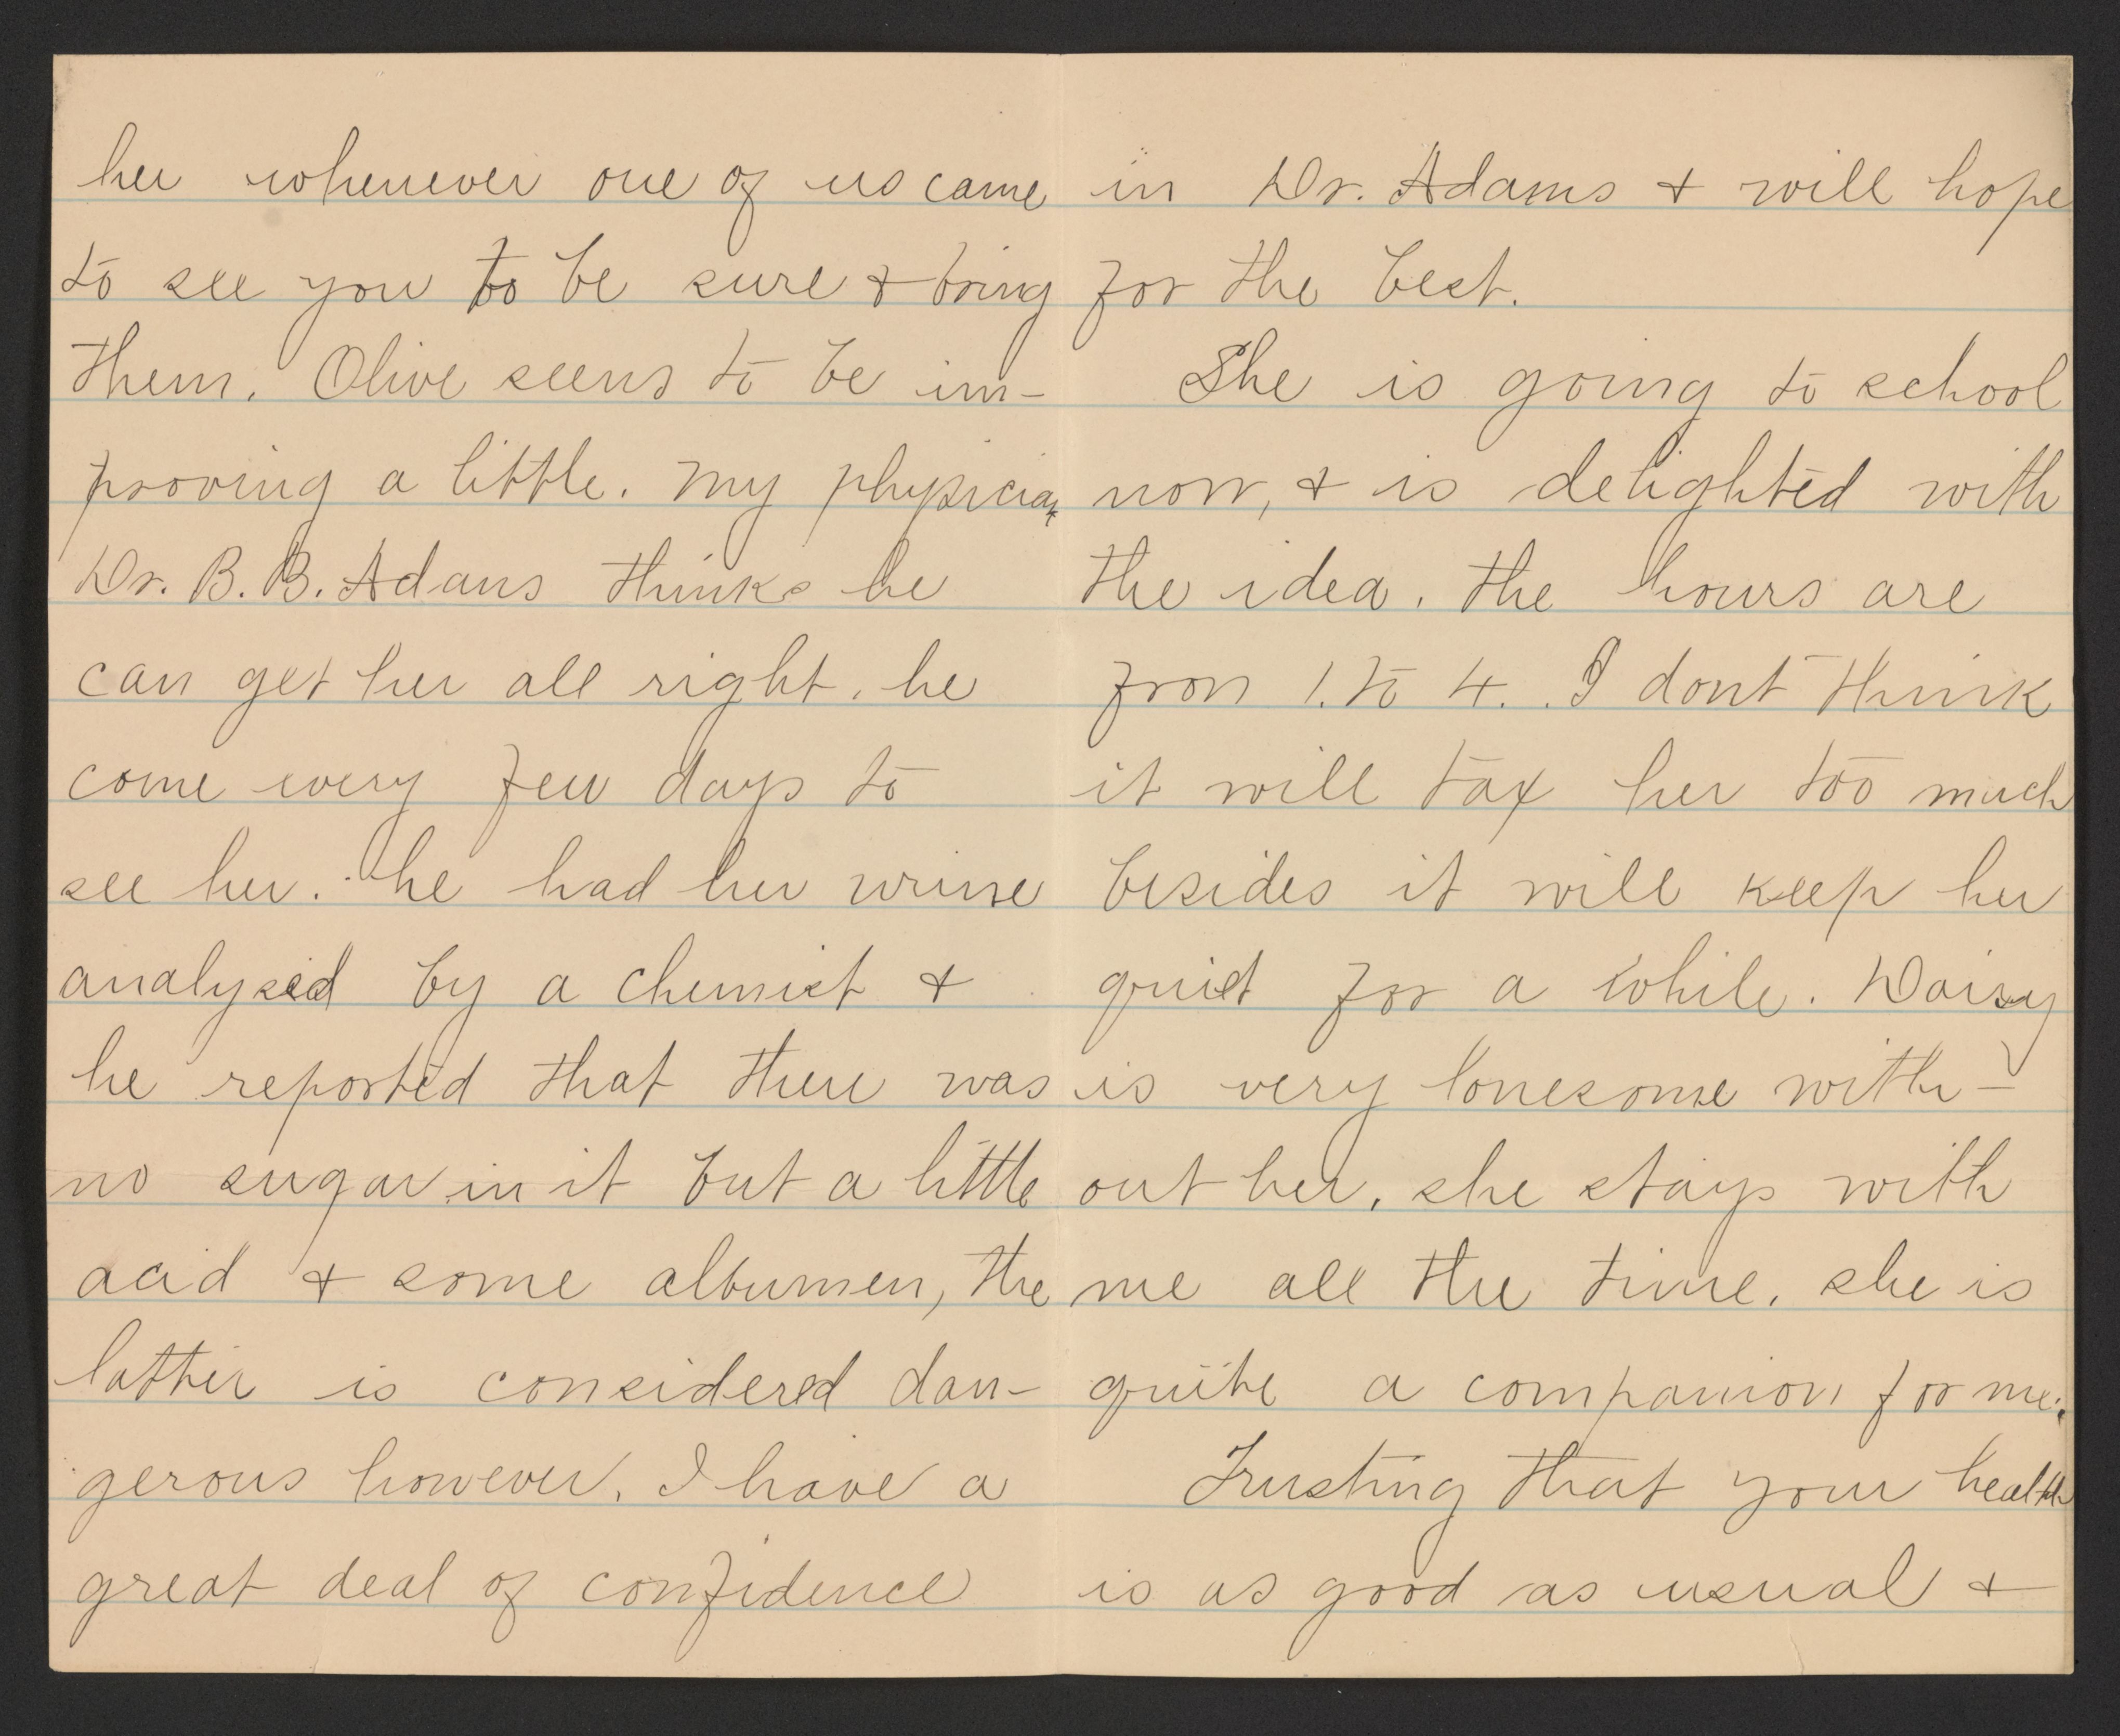 her whenever one of us came
to see you to be sure & bring
them. Olive seems to be im-
proving a little. My physician
Dr. B. B. Adams thinks he
can get her all right. he
come every few days to
see her. he had her urine
analysed by a chemist &
he reported that there was
no sugar in it but a little
acid & some albumen, the
latter is considered dan-
gerous however. I have a
great deal of confidence
in Dr. Adams & will hope
for the best.
She is going to school
now, & is delighted with
the idea. the hours are
from 1. to 4. . I dont think
it will tax her too much
besides it will keep her
quiet for a while. Daisy
is very lonesome with-
out her, she stays with
me all the time. she is
quite a companion for me.
Trusting that your health
is as good as usual &